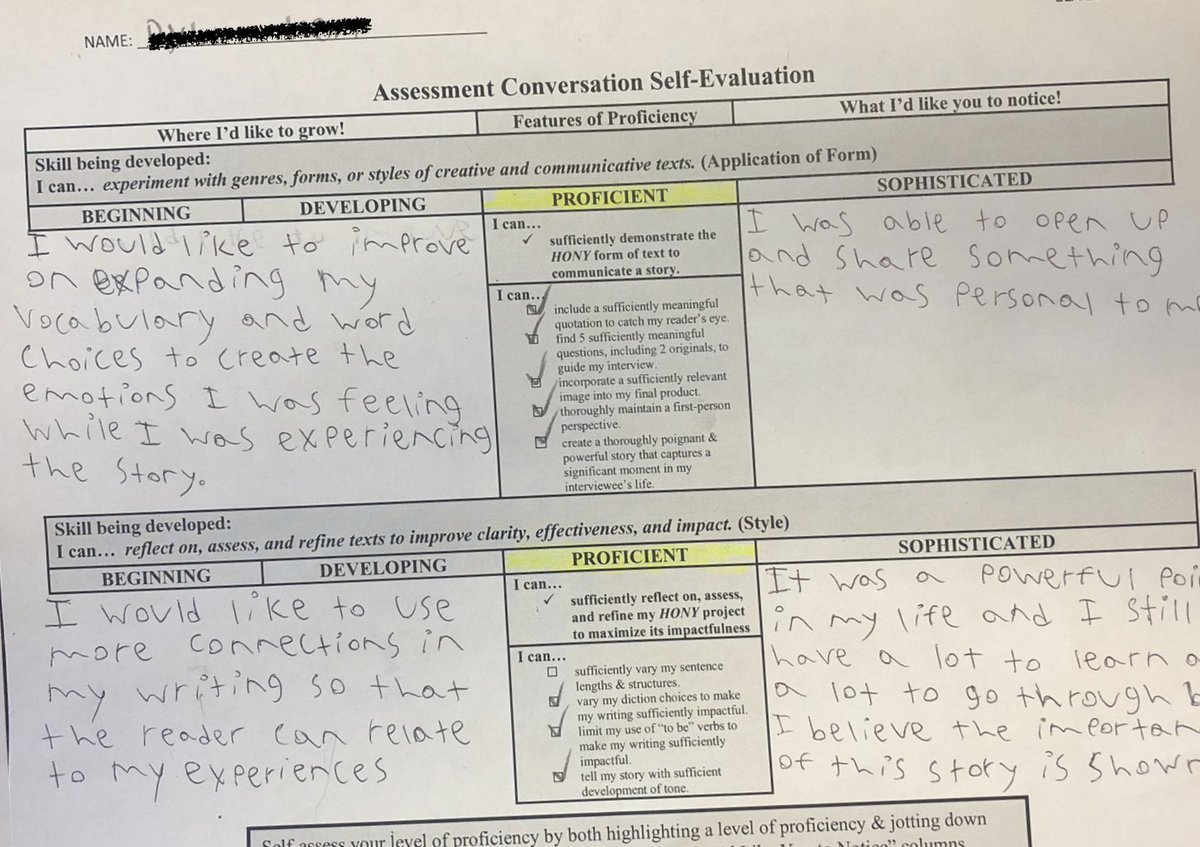 NAME:
Assessment Conversation Self-Evaluation
Where I'd like to grow!
Features of Proficiency
What I'd like you to notice!
Skill being developed:
I can… experiment with genres, forms, or styles of creative and communicative texts. (Application of Form)
BEGINNING
DEVELOPING
PROFICIENT
SOPHISTICATED
I would like to improve
on expanding my
Vocabulary and word
Choices to create the
emotions I was feeling
while I was experiencing
the Story.
I can…
✓ sufficiently demonstrate the
HONY form of text to
communicate a story.
I can…
include a sufficiently meaningful
quotation to catch my reader's eye.
find 5 sufficiently meaningful
questions, including 2 originals, to
guide my interview.
incorporate a sufficiently relevant
image into my final product.
thoroughly maintain a first-person
perspective.
create a thoroughly poignant &
powerful story that captures a
significant moment in my
interviewee's life.
I was able to open up
and share something
that was personal to
Skill being developed:
I can… reflect on, assess, and refine texts to improve clarity, effectiveness, and impact. (Style)
BEGINNING
DEVELOPING
PROFICIENT
SOPHISTICATED
I would like to use
more connections in
my writing so that
the reader can relate
to my experiences
I can…
✓ sufficiently reflect on, assess,
and refine my HONY project
to maximize its impactfulness
I can…
sufficiently vary my sentence
lengths & structures.
vary my diction choices to make
my writing sufficiently impactful.
limit my use of "to be" verbs to
make my writing sufficiently
impactful.
tell my story with sufficient
development of tone.
It was a powerful
in my life and I still
have a lot to learn
a lot to go through
I believe the
of this story is shown
Self assess your level of proficiency by both highlighting a level of proficiency & jotting down
Notice" columns